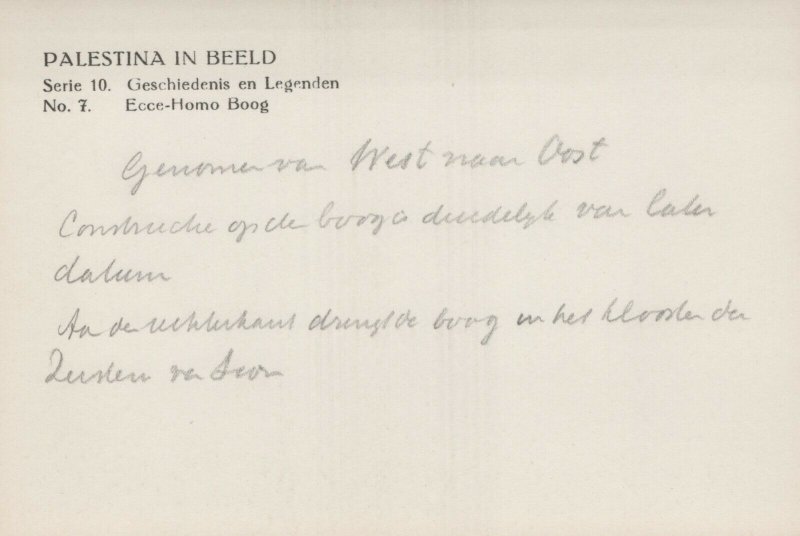 PALESTINA IN BEELD
Serie 10. Geschiedenis en Legenden
No. 7. Ecce-Homo Boog
Genomen van West naar Oost
Constructie op de boog is duidelijk van later
datum
Aan de rechterkant dringt de boog in het klooster der
Zusters van Sion